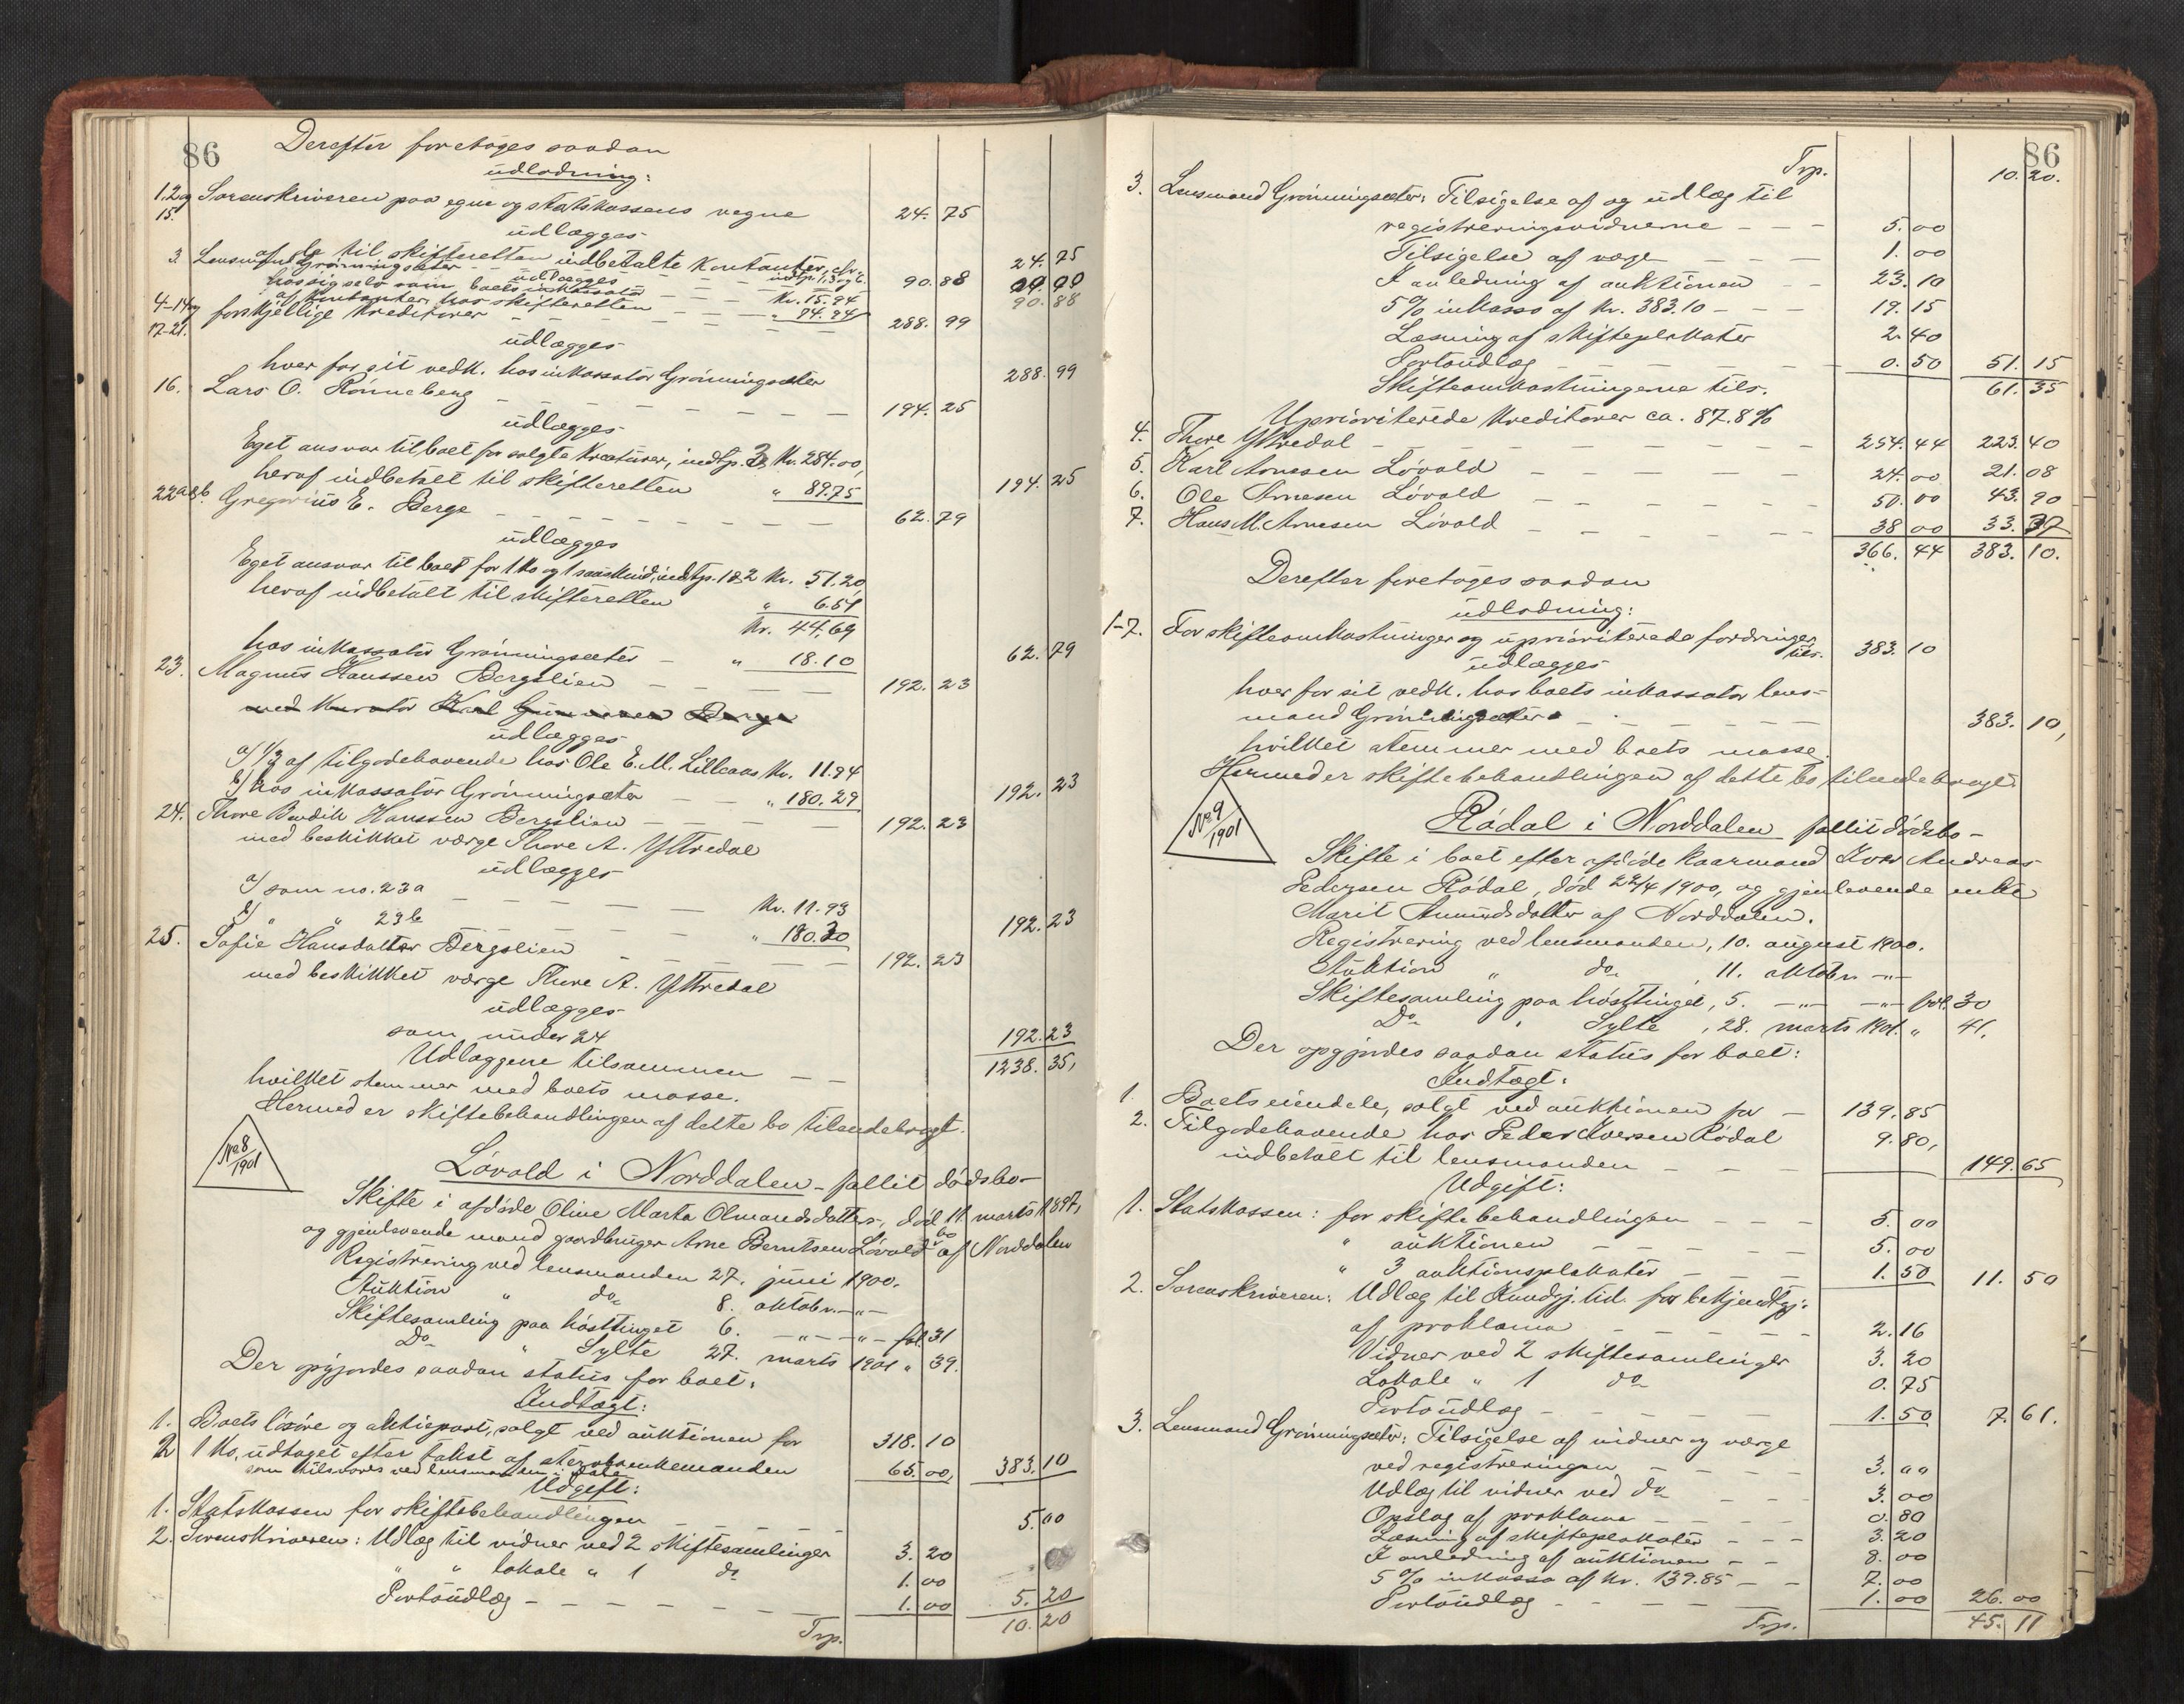 86
Derefter foretoges saadan
udlodning:
1,2 og 15. Sorenskriveren paa egne og statskassens vegne 24.75
udlægges
af de til skifteretten indbetalte kontanter, 24.75
3 Lensmand Grønningsæter 90.88
udlægges
hos sig selv som boets inkassator Kr. 15.94
af kontanter hos skifteretten " 74.94 90.88
4-14 og 17-21. forskjellige kreditorer 288.99
udlægges
hver for sit vedk. hos inkassator Grønningsæter 288.99
16. Lars O. Rønneberg 194.25
udlægges
Eget ansvar til boet for solgte kreaturer, indtp. 3, Kr. 284.00,
heraf indbetalt til skifteretten " 89.75 194.25
22 a&b. Gregorius E. Berge 62.79
udlægges
Eget ansvar til boet for 1 ko og 1 saueskind, indtp. 1&2 Kr. 51.20
heraf indbetalt til skifteretten " 6.51
Kr. 44.69
hos inkassator Grønningsæter " 18.10 62.79
23. Magnus Hanssen Bergslien 192.23
med kurator Karl Gunnersen Berge
udlægges
a/ 1/3 af tilgodehavende hos Ole E. M. Lilleaas Kr. 11.94
b/ hos inkassator Grønningsæter " 180.29 192.23
24. Thore Bendik Hanssen Bergslien 192.23
med beskikket værge Thore A. Yttredal
udlægges
a/ som no. 23a Kr. 11.93
b/ " " 23b " 180.30 192.23
25. Sofie Hansdatter Bergslien 192.23
med beskikket værge Thore A. Yttredal
udlægges
som under 24 192.23
Udlæggene tilsammen 1238.35,
hvilket stemmer med boets masse.
Hermed er skiftebehandlingen af dette bo tilendebragt.
No 8 1901
Løvold i Norddalen - fallit dødsbo -
Skifte i afdøde Oline Marta Olmandsdatter, død 11 marts 1897,
og gjenlevende mand gaardbruger Arne Berntsen Løvold bo af Norddalen
Registrering ved lensmanden 27. juni 1900.
Auktion " do 8. oktober -"-
Skiftesamling paa høsttinget 6. -"- -"- fol. 31
Do " Sylte 27. marts 1901 " 39.
Der opgjordes saadan status for boet:
Indtægt:
1. Boets løsøre og aktiepart, solgt ved auktionen for 318.10
2 1 ko, udtaget efter takst af sterboenkemanden
som tilsvares ved lensmanden i dele 65.00, 383.10
Udgift:
1. Statskassen for skiftebehandlingen 5.00
2. Sorenskriveren: Udlæg til vidner ved 2 skiftesamlinger 3.20
" " lokale " 1 do 1.00
Portoudlæg 1.00 5.20
Trp. 10.20
86
Trp. 10.20.
3. Lensmand Grønningsæter: Tilsigelse af og udlæg til
registreringsvidnerne 5.00
Tilsigelse af værge 1.00
I anledning af auktionen 23.10
5% inkasso af Kr. 383.10 19.15
Læsning af skifteplakater 2.40
Portoudlæg 0.50 51.15
Skifteomkostningerne tils. 61.35
Uprioriterede kreditorer ca. 87.8%
4. Thore Yttredal 254.44 223.40
5. Karl Arnesen Løvold 24.00 21.08
6. Ole Arnesen Løvold 50.00 43.90
7. Hans M. Arnesen Løvold 38.00 33.37
366.44 383.10.
Derefter foretoges saadan
udlodning:
1-7. For skifteomkostninger og uprioriterede fordringer tils. 383.10
udlægges
hver for sit vedk. hos boets inkassator lens-
mand Grønningsæter 383.10,
hvilket stemmer med boets masse.
Hermed er skiftebehandlingen af dette bo tilendebragt.
No 9 1901
Rødal i Norddalen fallit dødsbo -
Skifte i boet efter afdøde kaarmand Iver Andreas
Pedersen Rødal, død 22/4 1900, og gjenlevende enke
Marit Amundsdatter af Norddalen.
Registrering ved lensmanden, 10. august 1900.
Auktion " do , 11. oktober -"-
Skiftesamling paa høsttinget, 5. -"- -"- fol. 30
Do " Sylte , 28. marts 1901. " 41.
Der opgjordes saadan status for boet:
Indtægt:
1. Boets eiendele, solgt ved auktionen for 139.85
2. Tilgodehavende hos Peder Iversen Rødal 9.80,
indbetalt til lensmanden 149.65
Udgift:
1. Statskassen: for skiftebehandlingen 5.00
" auktionen 5.00
" 3 auktionsplakater 1.50 11.50
2. Sorenskriveren: Udlæg til Kundgj. tid. for bekjendtgj.
af proklama 2.16
Vidner ved 2 skiftesamlinger 3.20
Lokale " 1 do 0.75
Portoudlæg 1.50 7.61.
3. Lensmand Grønningsæter: Tilsigelse af vidner og værge
ved registreringen 3.00
Udlæg til vidner ved do 3.00
Opslag af proklama 0.80
Læsning af skifteplakater 3.20
I anledning af auktionen 8.00
5% inkasso af Kr. 139.85 7.00
Portoudlæg 1.00 26.00
Trp. 45.11